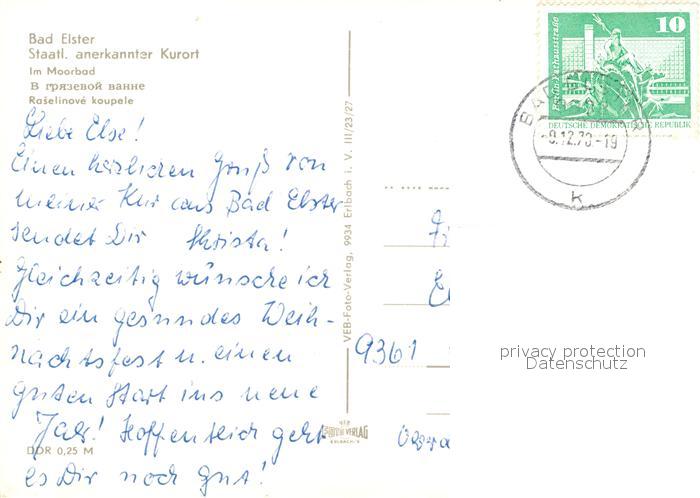 Bad Elster
Staatl. anerkannter Kurort
Im Moorbad
В грязевой ванне
Rašelinové koupele
Liebe Else!
Einen herzlichen Gruß von
meiner Kur aus Bad Elster
sendet Dir Christa!
Gleichzeitig wünsche ich
Dir ein gesundes Weih-
nachtsfest u. einen
guten Start ins neue
Jahr! Hoffentlich geht
es Dir noch gut!
DDR 0,25 M
VEB-Foto-Verlag, 9934 Erlbach i. V. III/23/27
VERLAG
ERLBACH/V
10
Berlin, Rathausstraße
DEUTSCHE DEMOKRATISCHE REPUBLIK
BAD
-9.12.78-19
k
9361
privacy protection
Datenschutz